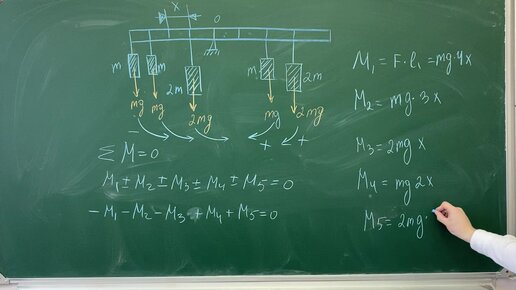 x
0
m m 2m m 2m
mg mg 2mg mg 2mg
- + +
Σ M = 0
M₁ ± M₂ ± M₃ ± M₄ ± M₅ = 0
- M₁ - M₂ - M₃ + M₄ + M₅ = 0
M₁ = F · l₁ = mg · 4x
M₂ = mg · 3x
M₃ = 2mg x
M₄ = mg 2x
M₅ = 2mg ·